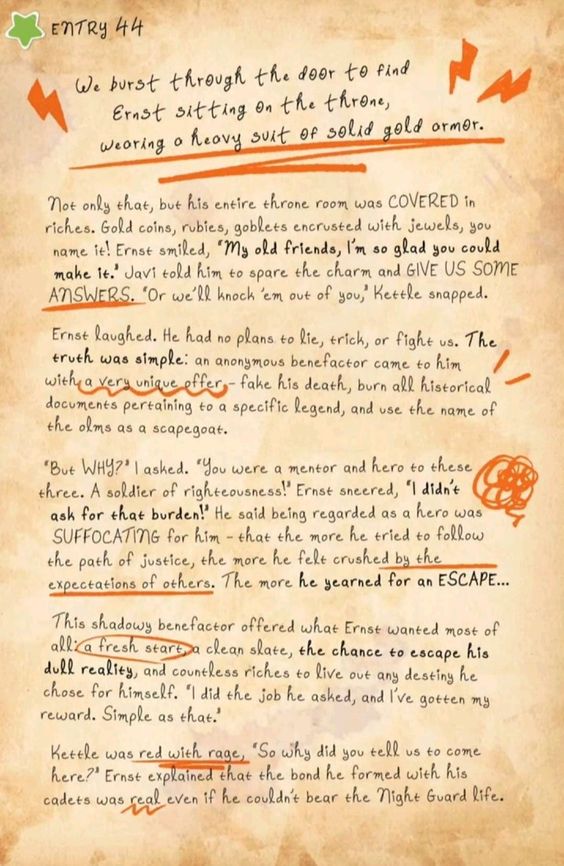 ENTRY 44
We burst through the door to find
Ernst sitting on the throne,
wearing a heavy suit of solid gold armor.
Not only that, but his entire throne room was COVERED in
riches. Gold coins, rubies, goblets encrusted with jewels, you
name it! Ernst smiled, "My old friends, I'm so glad you could
make it." Javi told him to spare the charm and GIVE US SOME
ANSWERS. "Or we'll knock 'em out of you," Kettle snapped.
Ernst laughed. He had no plans to lie, trick, or fight us. The
truth was simple: an anonymous benefactor came to him
with a very unique offer - fake his death, burn all historical
documents pertaining to a specific legend, and use the name of
the olms as a scapegoat.
"But WHY?" I asked. "You were a mentor and hero to these
three. A soldier of righteousness!" Ernst sneered, "I didn't
ask for that burden!" He said being regarded as a hero was
SUFFOCATING for him - that the more he tried to follow
the path of justice, the more he felt crushed by the
expectations of others. The more he yearned for an ESCAPE...
This shadowy benefactor offered what Ernst wanted most of
all: a fresh start, a clean slate, the chance to escape his
dull reality, and countless riches to live out any destiny he
chose for himself. "I did the job he asked, and I've gotten my
reward. Simple as that."
Kettle was red with rage, "So why did you tell us to come
here?" Ernst explained that the bond he formed with his
cadets was real even if he couldn't bear the Night Guard life.